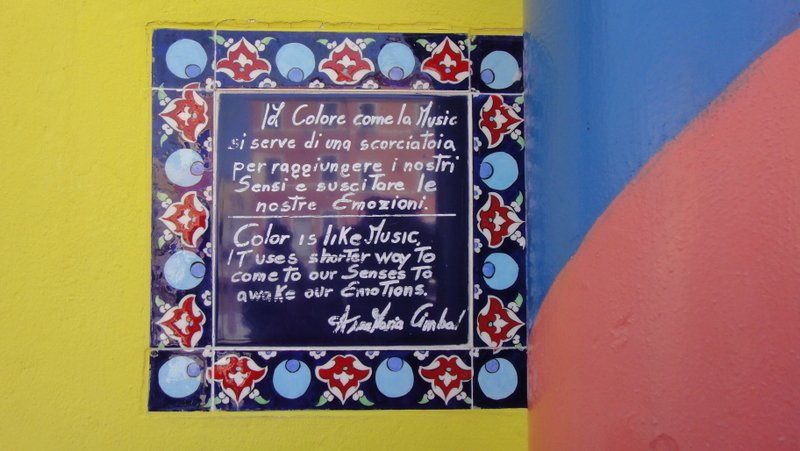 Il Colore come la Music
si serve di una scorciatoia
per raggiungere i nostri
Sensi e suscitare le
nostre Emozioni.
Color is like Music,
IT uses shorter way To
come To our Senses To
awake our EmoTions.